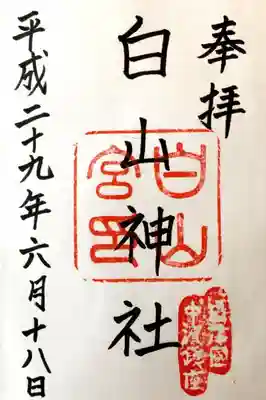 奉拝
白山神社
白山宮印
平成二十九年六月十八日